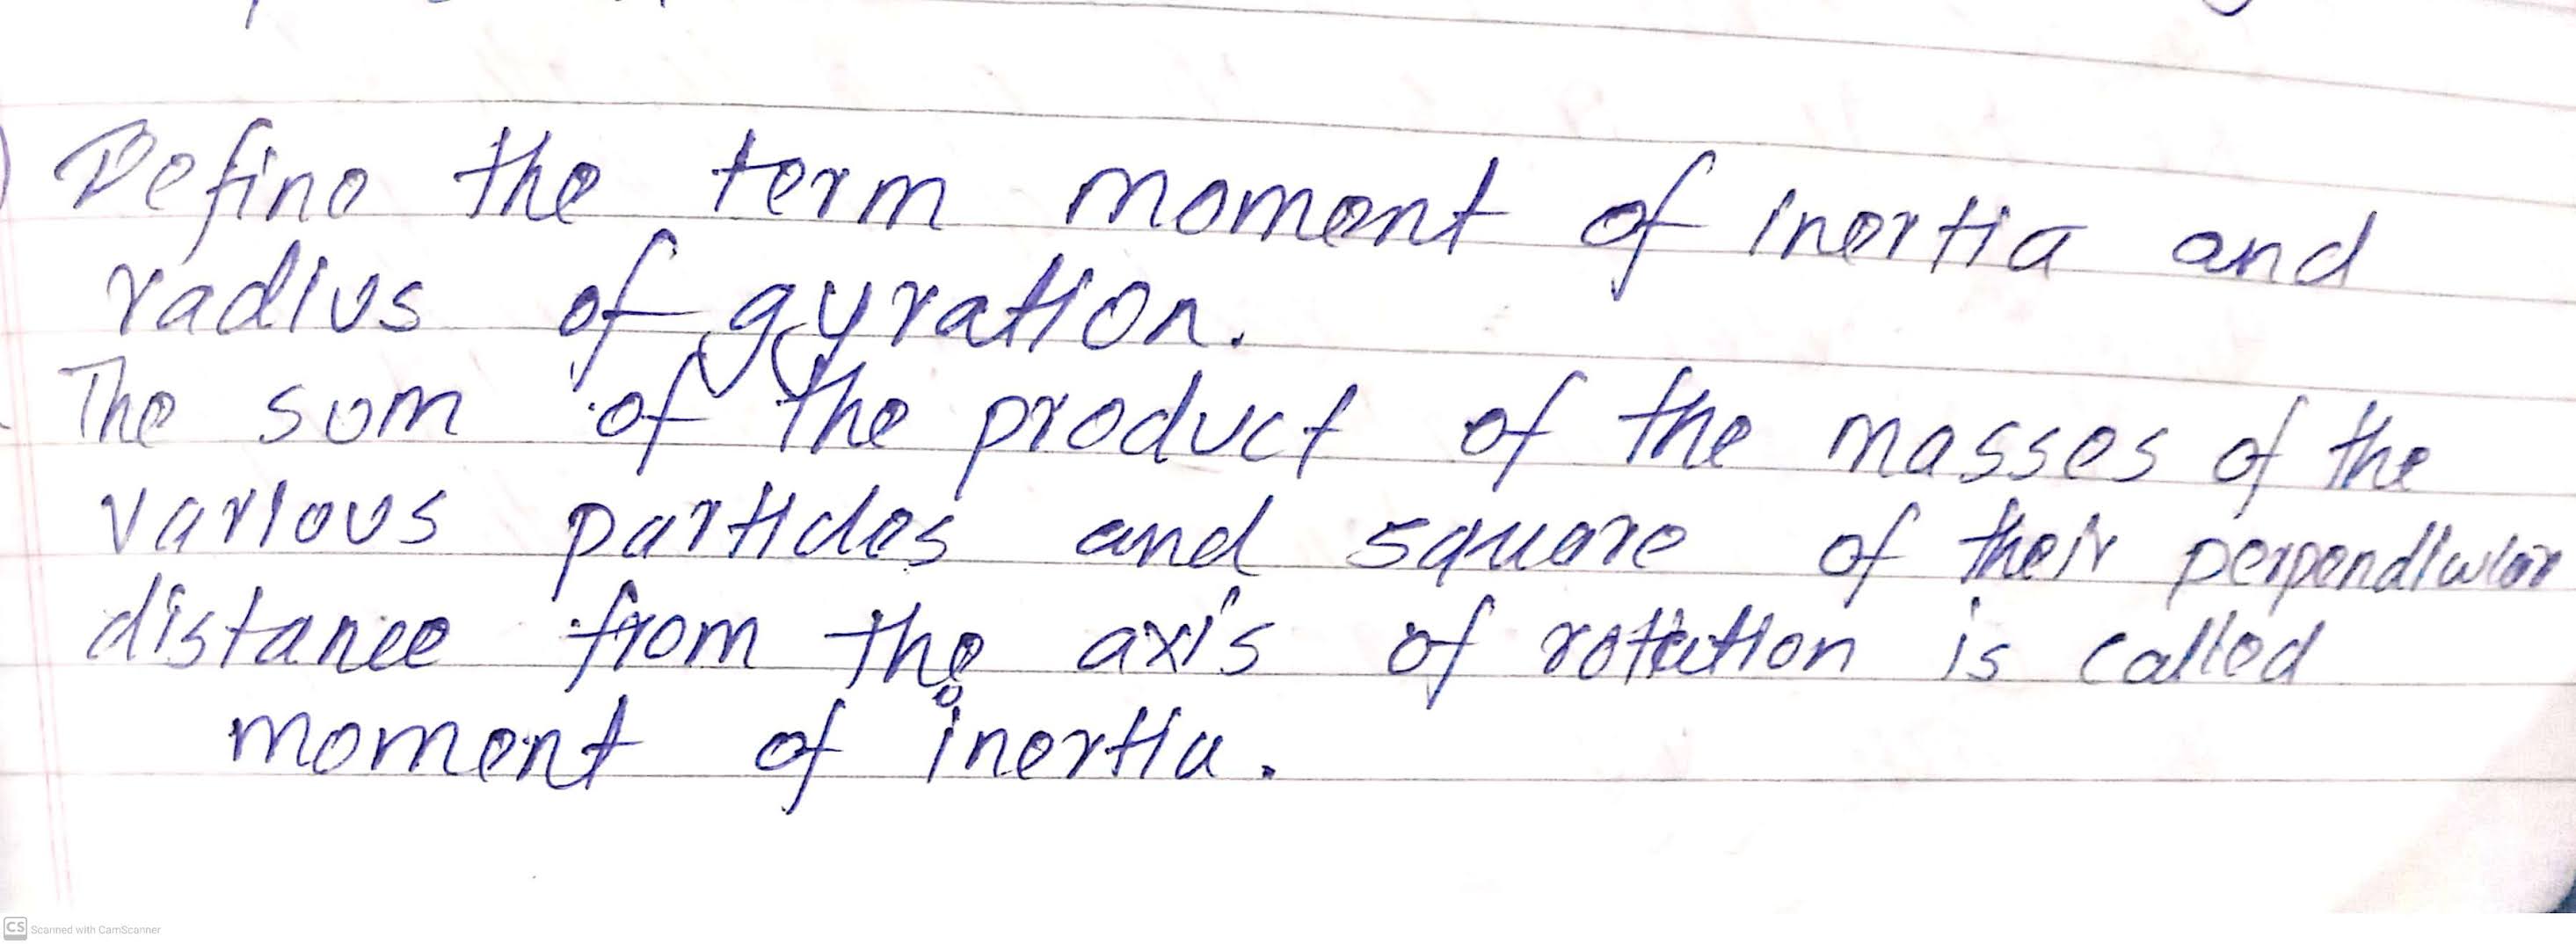 Define the term moment of inertia and
radius of gyration.
The sum of the product of the masses of the
various particles and square of their perpendicular
distance from the axis of rotation is called
moment of inertia.
CS Scanned with CamScanner